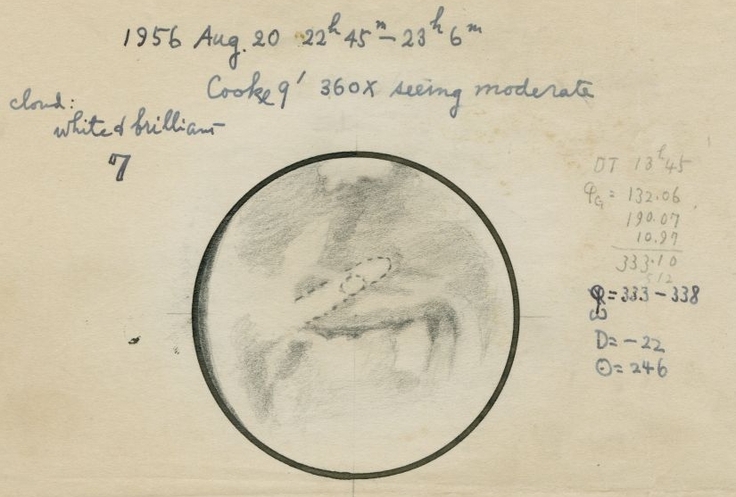 1956 Aug. 20 22h 45m – 23h 6m
Cooke 9' 360X seeing moderate
cloud:
white & brilliant
7
DT 13h 45
φG = 132.06
190.07
10.97
333.10
ω = 333 – 338
D = – 22
☉ = 246